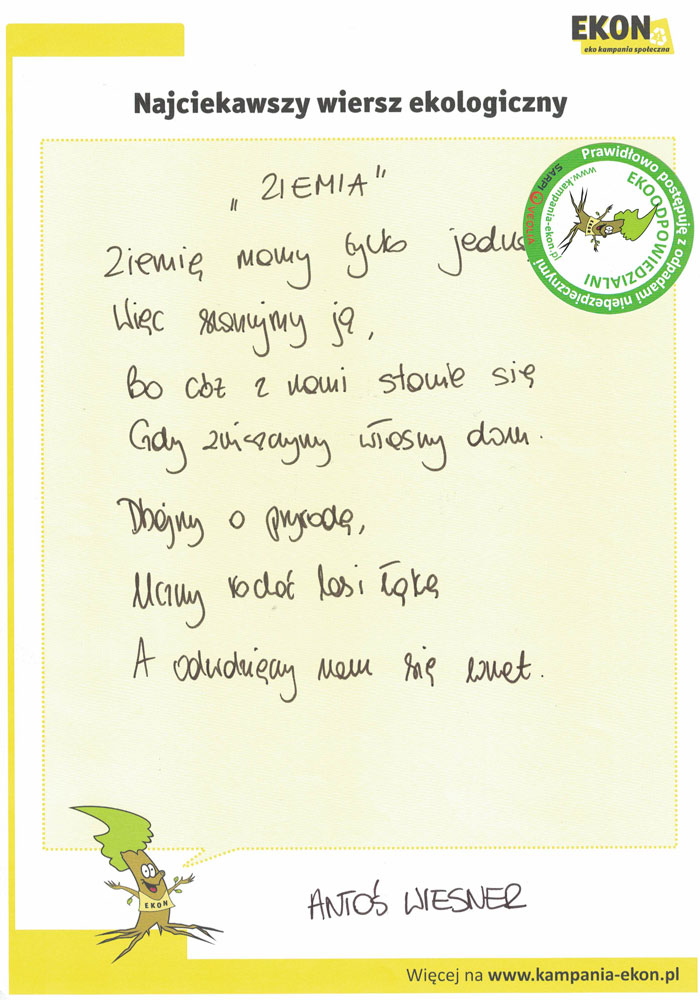 EKON
eko kampania społeczna
Najciekawszy wiersz ekologiczny
„ZIEMIA”
Ziemię mamy tylko
Więc szanujmy ją,
Bo cóż z nami stanie się
Gdy zniszczymy własny dom.
Dbajmy o przyrodę,
Uczmy las i łąkę
A odwdzięczy nam się wnet.
Prawidłowo postępuję z odpadami niebezpiecznymi
SARPI VEOLIA
www.kampania-ekon.pl
EKOODPOWIEDZIALNI
EKON
ANTOŚ WIESNER
Więcej na www.kampania-ekon.pl